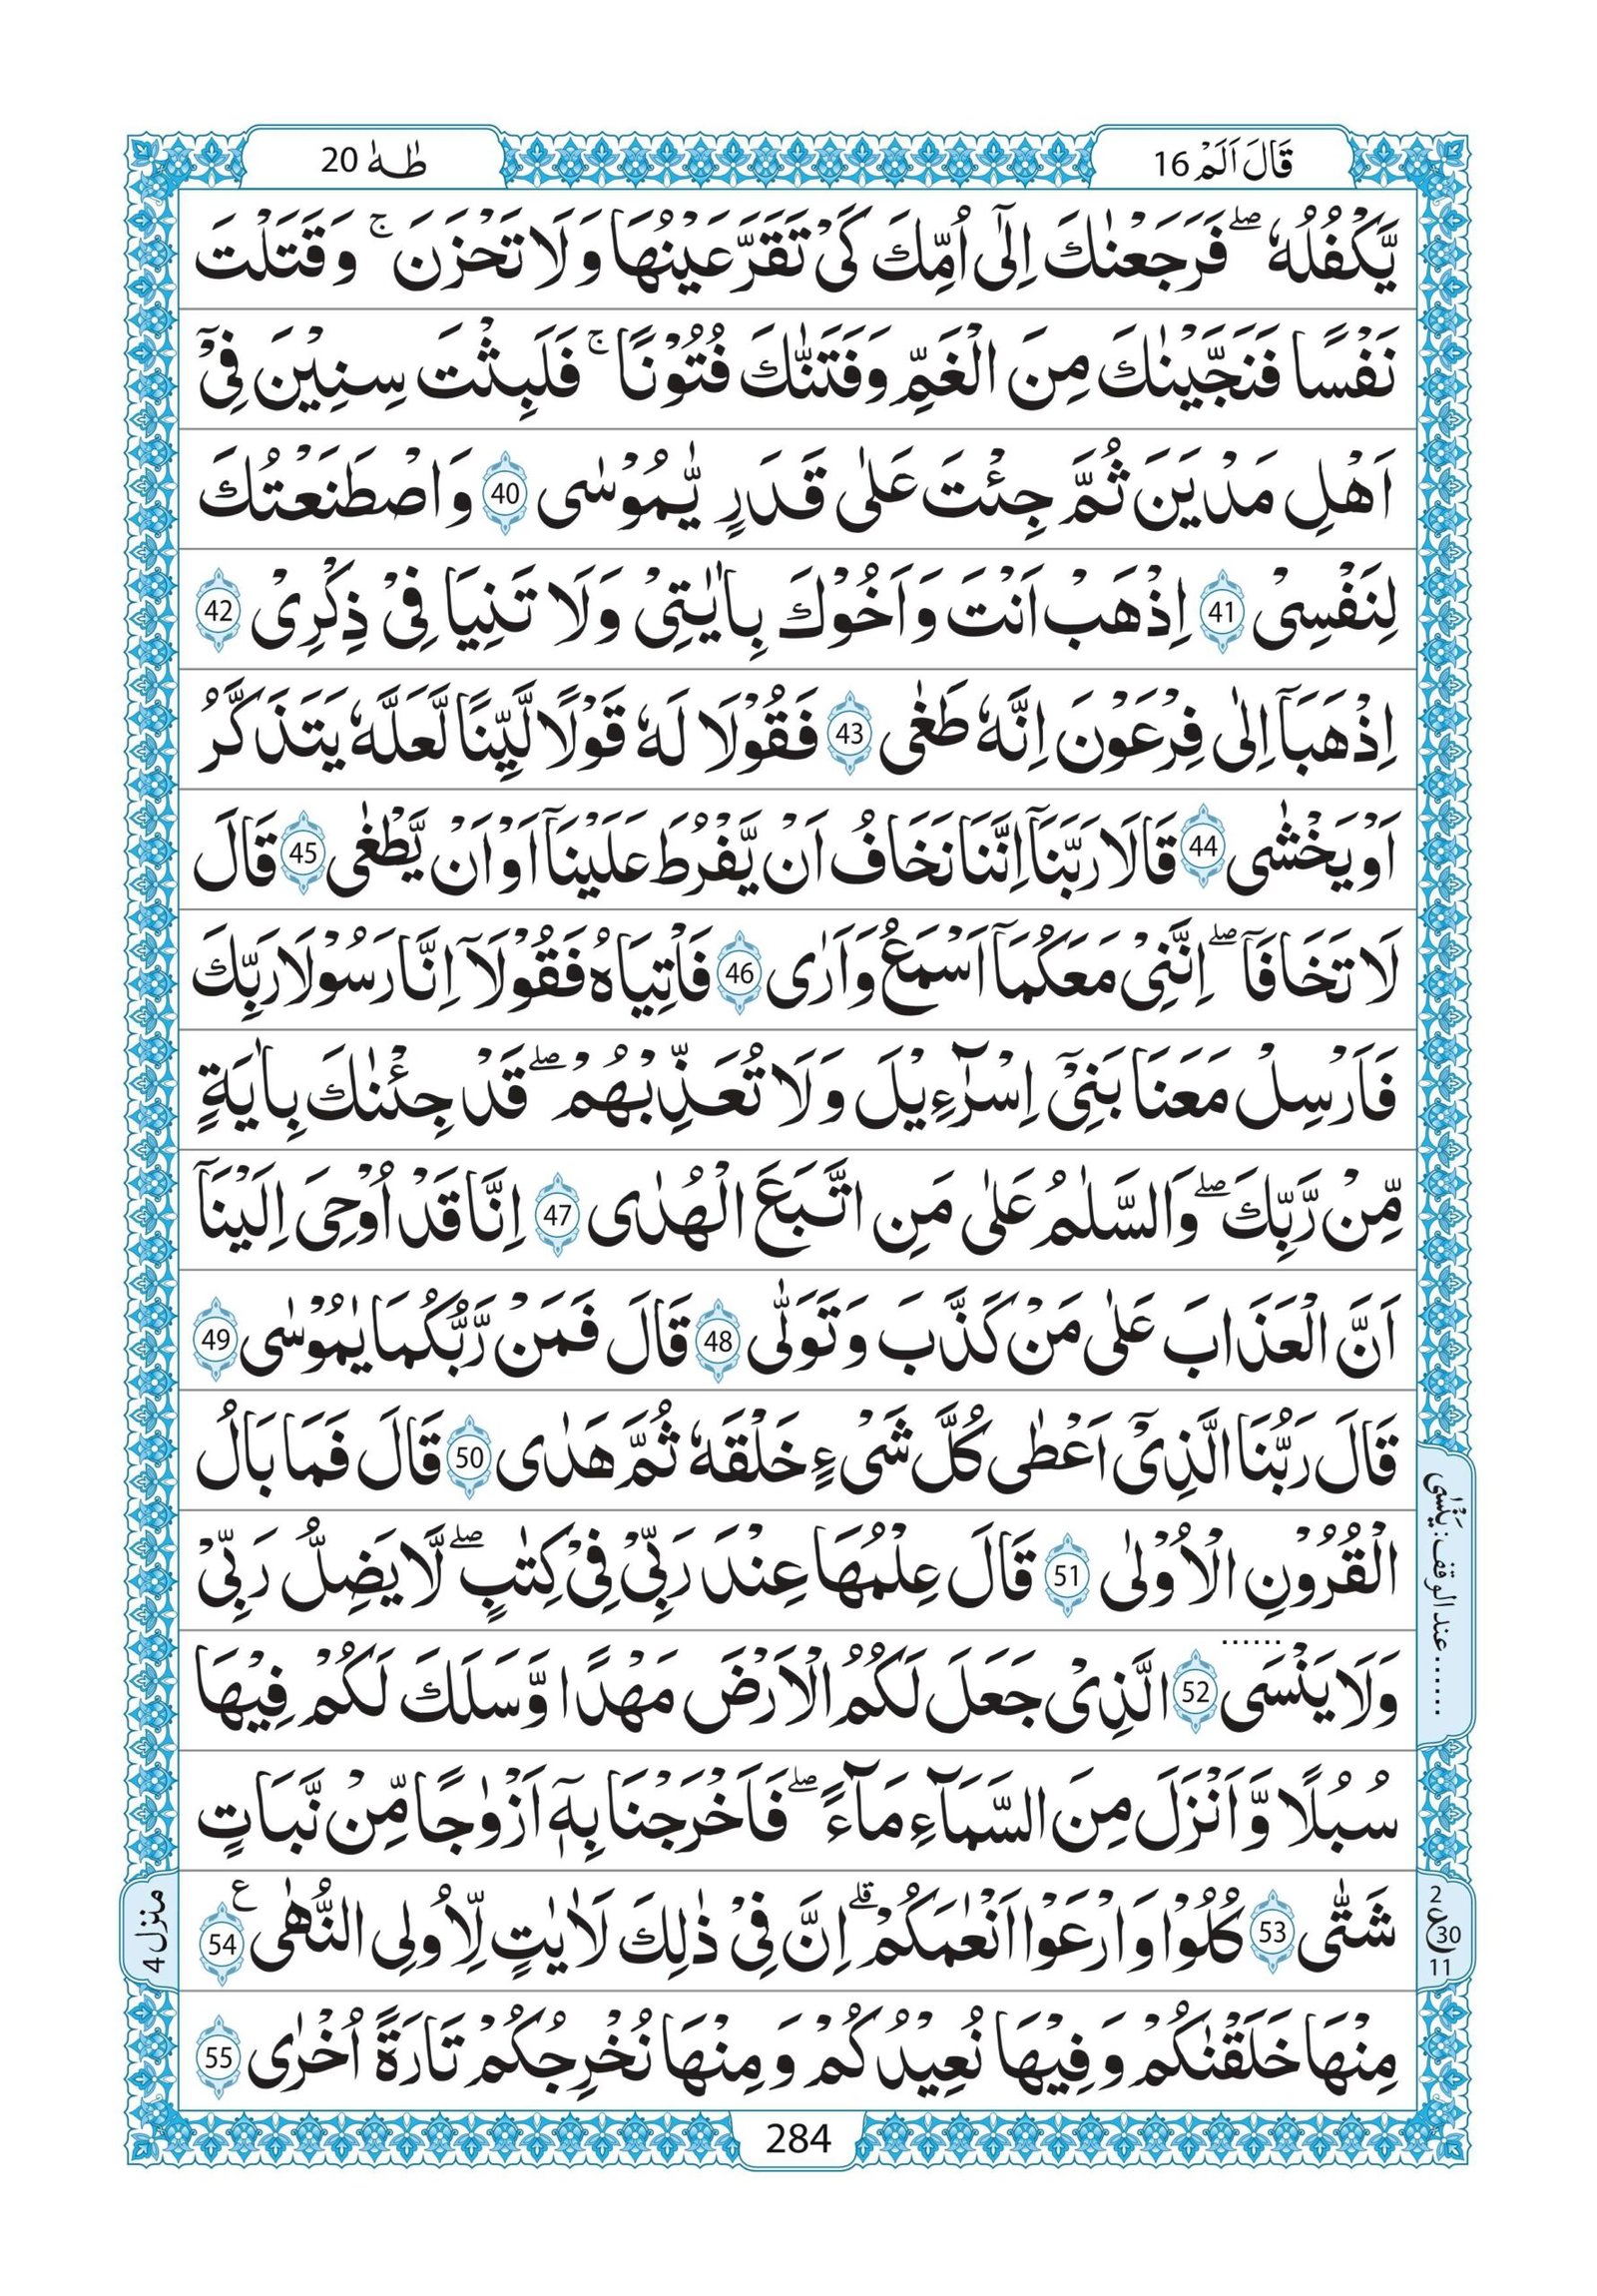 قَالَ اَلَمْ 16
طٰهٰ 20
يَّكْفُلُهٗ ۖ فَرَجَعْنٰكَ اِلٰٓى اُمِّكَ كَىْ تَقَرَّ عَيْنُهَا وَلَا تَحْزَنَ ۚ وَقَتَلْتَ
نَفْسًا فَنَجَّيْنٰكَ مِنَ الْغَمِّ وَفَتَنّٰكَ فُتُوْنًا ۚ فَلَبِثْتَ سِنِيْنَ فِىْٓ
اَهْلِ مَدْيَنَ ثُمَّ جِئْتَ عَلٰى قَدَرٍ يّٰمُوْسٰى 40 وَاصْطَنَعْتُكَ
لِنَفْسِىْ 41 اِذْهَبْ اَنْتَ وَاَخُوْكَ بِاٰيٰتِىْ وَلَا تَنِيَا فِىْ ذِكْرِىْ 42
اِذْهَبَآ اِلٰى فِرْعَوْنَ اِنَّهٗ طَغٰى 43 فَقُوْلَا لَهٗ قَوْلًا لَّيِّنًا لَّعَلَّهٗ يَتَذَكَّرُ
اَوْ يَخْشٰى 44 قَالَا رَبَّنَآ اِنَّنَا نَخَافُ اَنْ يَّفْرُطَ عَلَيْنَآ اَوْ اَنْ يَّطْغٰى 45 قَالَ
لَا تَخَافَآ ۖ اِنَّنِىْ مَعَكُمَآ اَسْمَعُ وَاَرٰى 46 فَاْتِيَاهُ فَقُوْلَآ اِنَّا رَسُوْلَا رَبِّكَ
فَاَرْسِلْ مَعَنَا بَنِىْٓ اِسْرَآءِيْلَ وَلَا تُعَذِّبْهُمْ ۖ قَدْ جِئْنٰكَ بِاٰيَةٍ
مِّنْ رَّبِّكَ ۖ وَالسَّلٰمُ عَلٰى مَنِ اتَّبَعَ الْهُدٰى 47 اِنَّا قَدْ اُوْحِىَ اِلَيْنَآ
اَنَّ الْعَذَابَ عَلٰى مَنْ كَذَّبَ وَتَوَلّٰى 48 قَالَ فَمَنْ رَّبُّكُمَا يٰمُوْسٰى 49
قَالَ رَبُّنَا الَّذِىْٓ اَعْطٰى كُلَّ شَىْءٍ خَلْقَهٗ ثُمَّ هَدٰى 50 قَالَ فَمَا بَالُ
الْقُرُوْنِ الْاُوْلٰى 51 قَالَ عِلْمُهَا عِنْدَ رَبِّىْ فِىْ كِتٰبٍ ۖ لَّا يَضِلُّ رَبِّىْ
وَلَا يَنْسَى 52 الَّذِىْ جَعَلَ لَكُمُ الْاَرْضَ مَهْدًا وَّسَلَكَ لَكُمْ فِيْهَا
سُبُلًا وَّاَنْزَلَ مِنَ السَّمَآءِ مَآءً ۖ فَاَخْرَجْنَا بِهٖٓ اَزْوٰجًا مِّنْ نَّبَاتٍ
شَتّٰى 53 كُلُوْا وَارْعَوْا اَنْعٰمَكُمْ ۗ اِنَّ فِىْ ذٰلِكَ لَاٰيٰتٍ لِّاُولِى النُّهٰى ع 54
مِنْهَا خَلَقْنٰكُمْ وَفِيْهَا نُعِيْدُكُمْ وَمِنْهَا نُخْرِجُكُمْ تَارَةً اُخْرٰى 55
......عند الوقف: يَنْسٰى
2
ع 30
11
منزل 4
284